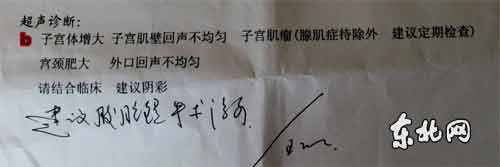 超声诊断:
b 子宫体增大 子宫肌壁回声不均匀 子宫肌瘤(腺肌症待除外 建议定期检查)
宫颈肥大 外口回声不均匀
请结合临床 建议阴彩
建议腹腔镜手术治疗.
东北网